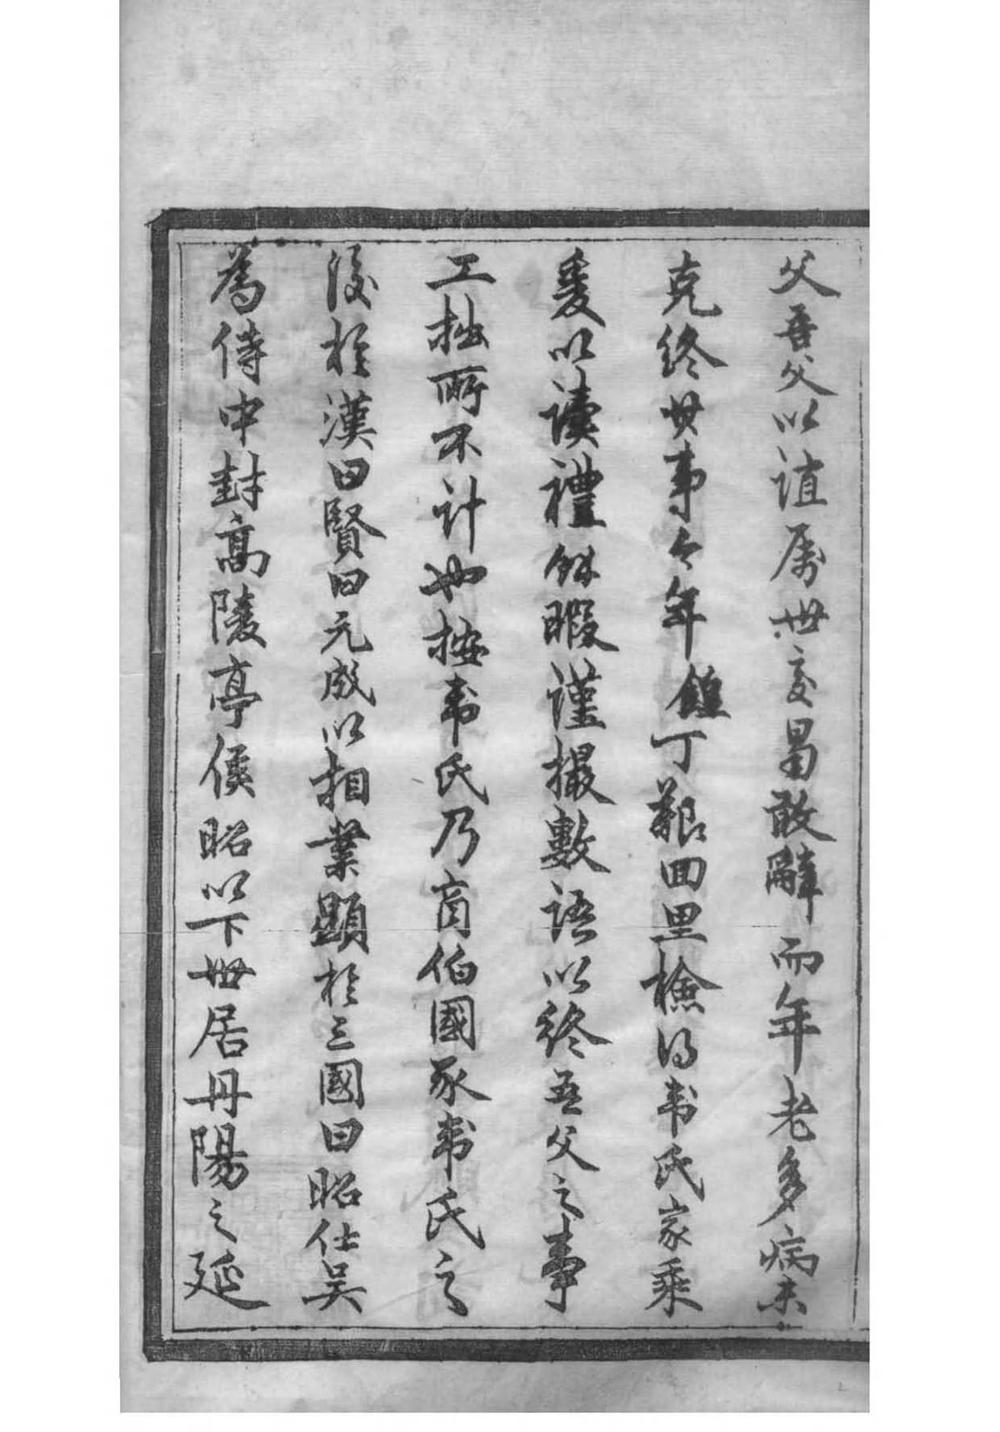 父吾父以誼屬世交曷敢辭而年老多病未
克終廿事今年鍾丁艱回里檢得韦氏家乘
爰以讀禮餘暇謹撮數語以終吾父之事
工拙所不計也按韦氏乃商伯國豕韦氏之
後於漢曰賢曰元成以相業顯於三國曰昭仕吳
為侍中封高陵亭侯昭以下世居丹陽之延